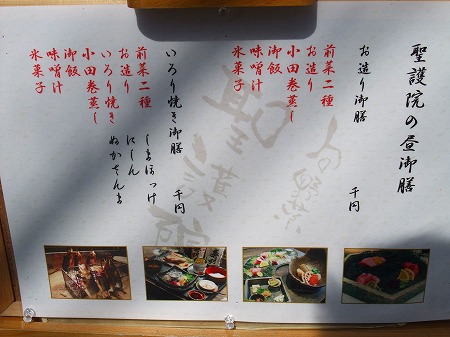 聖護院の昼御膳
お造り御膳 千円
前菜二種
お造り
小田巻蒸し
御飯
味噌汁
氷菓子
いろり焼き御膳 千円
前菜二種
お造り
いろり焼き
しまほっけ
にしん
ぬかさんま
小田巻蒸し
御飯
味噌汁
氷菓子